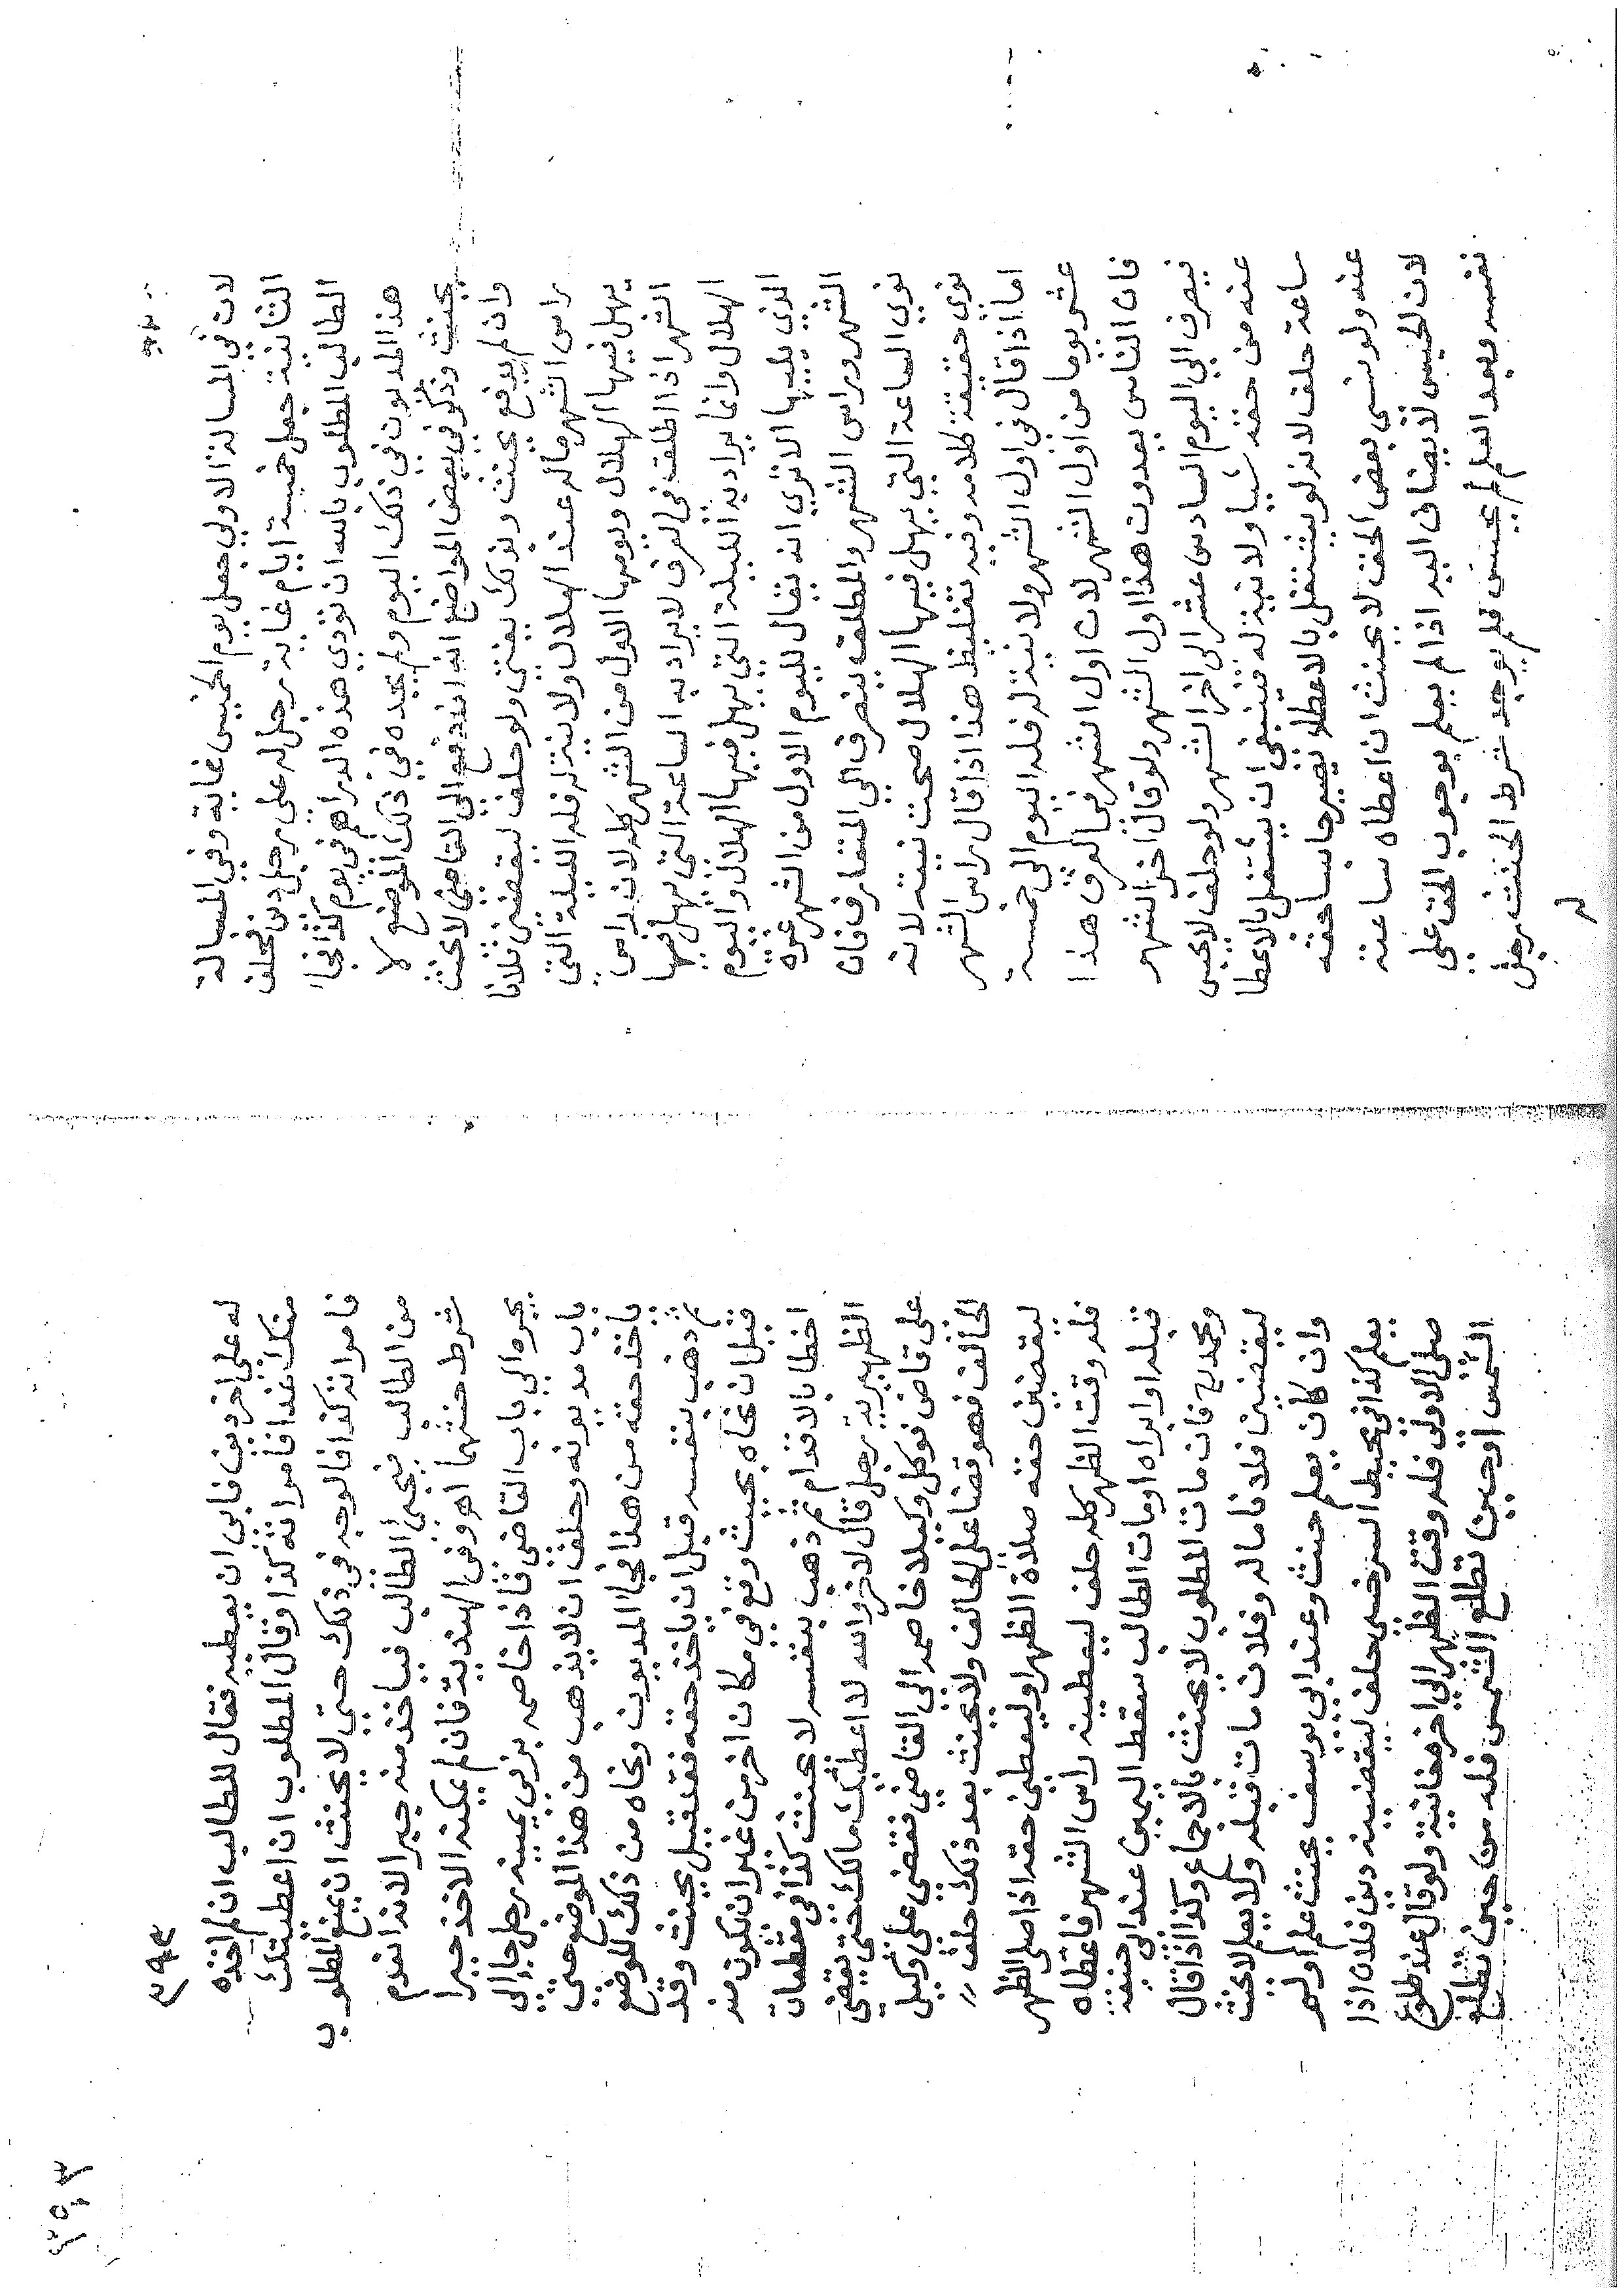 لان في المسالة الاولي جعل يوم الخميس غاية وفي المسالة
الثانية جعل خمسة ايام غاية رجل له علي رجل دين فحلف
الطالب المطلوب بالله ان تؤدي هذه الدراهم في يوم كذا فجا
هذا المديون في ذلك اليوم ولم يجده في ذلك الموضع لا
يحنث وذكر في بعض المواضع انه ان دفع الي القاضي لا يحنث
وان لم يدفع يحنث وبذلك يفتي ولو حلف ليقضين فلانا
راس الشهر ماله عند الهلال ولا نية له فله الليلة التي
يهل فيها الهلال ويومها الاول من الشهر كله لان راس
الشهر اذا اطلق في العرف لا يراد به الساعة التي يهل فيها
الهلال وانما يراد به الليلة التي يهل فيها الهلال واليوم
الذي يليها الا تري انه يقال لليوم الاول من الشهر غرة
الشهر وراس الشهر والمطلق ينصرف الي المتعارف فان
نوي الساعة التي يهل فيها الهلال صحت نيته لانه
نوي حقيقة كلامه وفيه تغليظ هذا اذا قال راس الشهر
اما اذا قال في اول الشهر ولا نية له فله اليوم الي خمسة
عشر يوما من اول الشهر لان اول الشهر في العرف هذا
فان الناس يعدون هذا اول الشهر ولو قال اخر الشهر
فيصرف الي اليوم السادس عشر الي اخر الشهر ولو حلف لا يحبس
عنه من حقه شيا ولا نية له فينبغي ان يشتغل بالاعطا
ساعة حلف لانه لو يشتغل بالاعطا يصير حابسا حقه
عنه ولو نسي بعض الحق لا يحنث ان اعطاه ساعته
لان الحبس لا يضاف اليه اذا لم يعلم بوجوب الحق علي
نفسه وبعد العلم لم يحبس فلم يوجد شرط الحنث رجل
له
٣٩٤
له علي اخر دين فابي ان يعطيه فقال للطالب ان لم اخذه
منك غدا فامراته كذا وقال المطلوب ان اعطيتك
فامراته كذا فالوجه في ذلك حتي لا يحنث ان يمنع المطلوب
من الطالب فيجئ الطالب فياخذ منه جبرا الا انه انعدم
شرط حنثهما اهـ وفي الهندية فان لم يمكنه الاخذ جبرا
يجره الي باب القاضي فاذا خاصمه بر في يمينه رجل جا الي
باب مديونه وحلف ان لا يذهب من هذا الموضع حتي
ياخذ حقه من هذا فجا المديون ونحاه من ذلك الموضع
ثم ذهب بنفسه قبل ان ياخذ حقه فقد قيل يحنث وقد
قيل ان نحاه بحيث وقع في مكان اخر من غير ان يكون منه
اخطا بالاقدام ثم ذهب بنفسه لا يحنث كذا في مقطعات
الظهيرية رجل قال لاخر والله لا اعطيك مالك حتي يقضي
علي قاض فوكل وكيلا خاصمه الي القاضي فقضي علي وكيل
الحالف فهو قضا علي الحالف ولا يحنث بعد ذلك حلف
ليقضين حقه صلاة الظهر او ليعطين حقه اذا صلي الظهر
فله وقت الظهر كله حلف ليعطينه راس الشهر فاعطاه
قبله او ابراه او مات الطالب سقط اليمين عند ابي حنيفة
ومحمد رح فان مات المطلوب لا يحنث بالاجماع وكذا اذا قال
ليقضين فلانا ماله وفلان مات قبله ولا يعلم لا يحنث
وان كان يعلم حنث وعند ابي يوسف يحنث علم او لم
يعلم كذا في محيط السرخسي حلف ليقضينه دين فلان اذا
صلي الاولي فله وقت الظهر الي اخره خانية ولو قال عند طلوع
الشمس او حين تطلع الشمس فله من حين تطلع